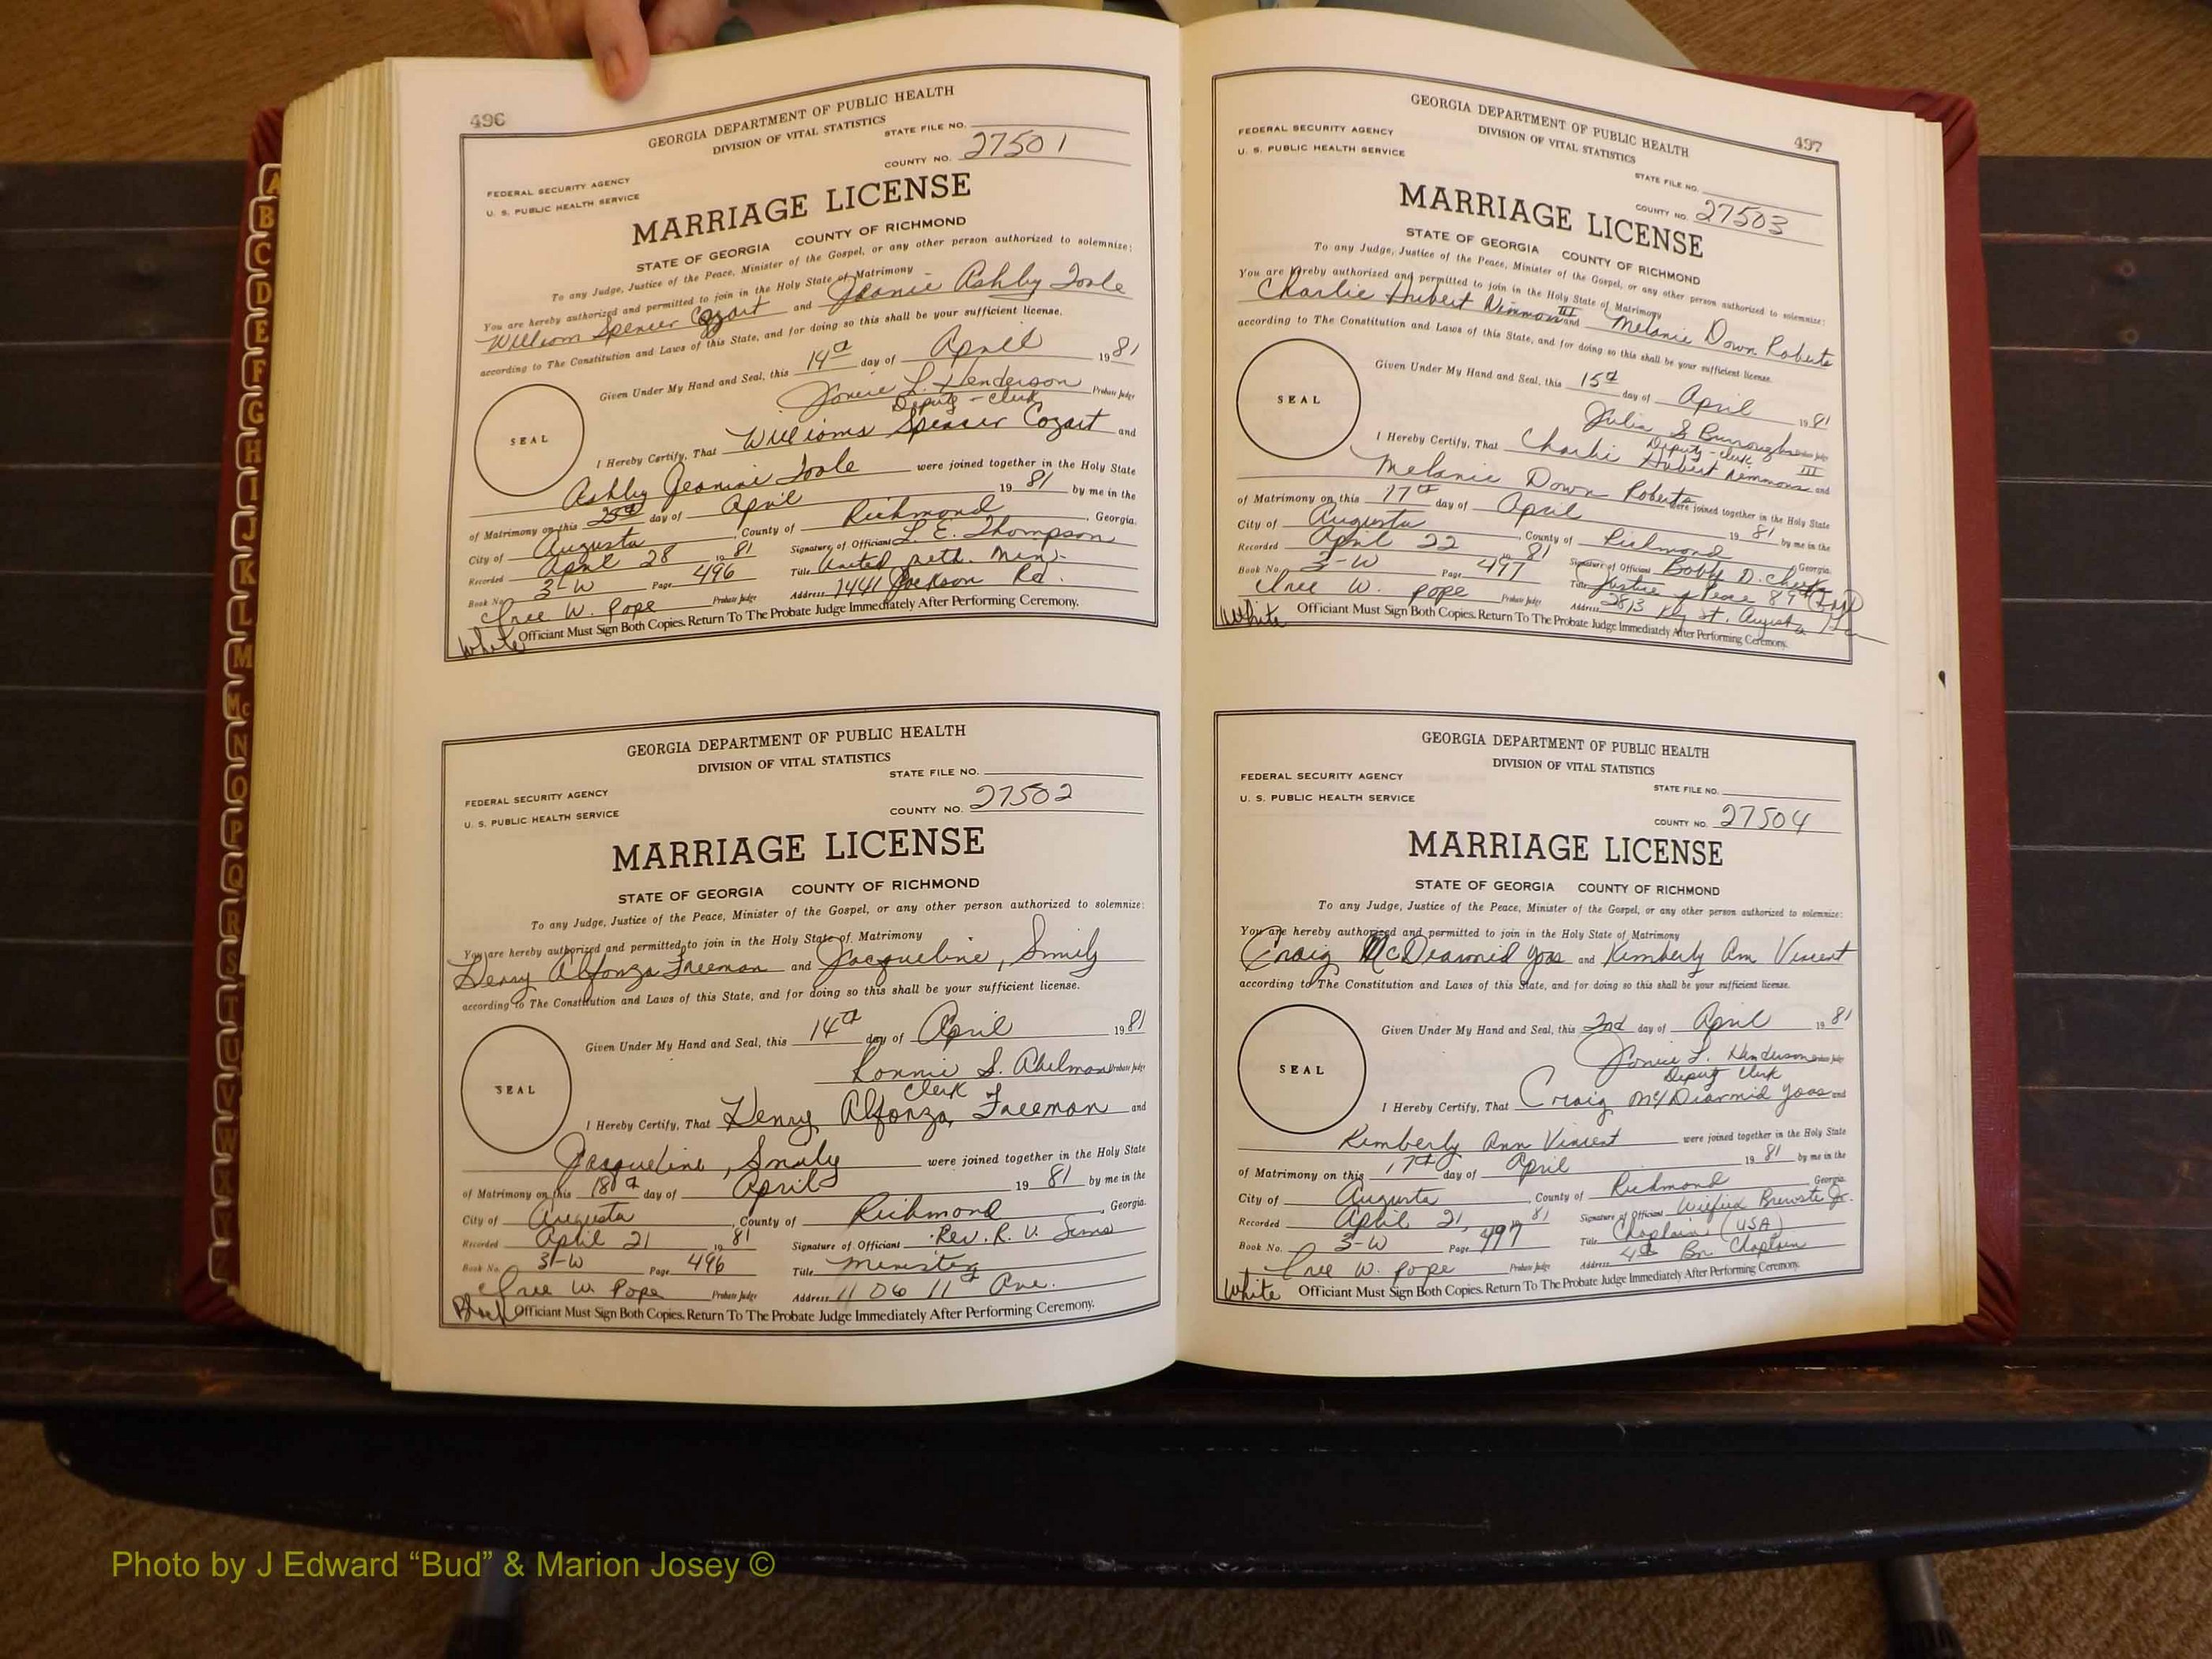 496
GEORGIA DEPARTMENT OF PUBLIC HEALTH
DIVISION OF VITAL STATISTICS
STATE FILE NO.
COUNTY NO. 27501
FEDERAL SECURITY AGENCY
U. S. PUBLIC HEALTH SERVICE
MARRIAGE LICENSE
STATE OF GEORGIA COUNTY OF RICHMOND
To any Judge, Justice of the Peace, Minister of the Gospel, or any other person authorized to solemnize:
You are hereby authorized and permitted to join in the Holy State of Matrimony
William Spencer Cozart and Jeanie Ashby Toole
according to The Constitution and Laws of this State, and for doing so this shall be your sufficient license.
Given Under My Hand and Seal, this 14th day of April 1981
L. Henderson Probate Judge
Deputy - Clerk
SEAL
I Hereby Certify, That Williams Spencer Cozart and
Ashby Jeanine Toole were joined together in the Holy State
of Matrimony on this 25th day of April 1981 by me in the
City of Augusta, County of Richmond, Georgia.
Recorded April 28 1981 Signature of Officiant L. E. Thompson
Book No. 3-W Page 496 Title United Meth. Min.
W. Pope Probate Judge Address Jackson Rd.
White Officiant Must Sign Both Copies. Return To The Probate Judge Immediately After Performing Ceremony.
GEORGIA DEPARTMENT OF PUBLIC HEALTH
DIVISION OF VITAL STATISTICS
STATE FILE NO.
FEDERAL SECURITY AGENCY
U. S. PUBLIC HEALTH SERVICE
COUNTY NO. 27502
MARRIAGE LICENSE
STATE OF GEORGIA COUNTY OF RICHMOND
To any Judge, Justice of the Peace, Minister of the Gospel, or any other person authorized to solemnize:
You are hereby authorized and permitted to join in the Holy State of Matrimony
Henry Alfonza Freeman and Jacqueline,
according to The Constitution and Laws of this State, and for doing so this shall be your sufficient license.
Given Under My Hand and Seal, this 14th day of April 1981
S. Probate Judge
Clerk
SEAL
I Hereby Certify, That Henry Alfonza, Freeman and
Jacqueline, were joined together in the Holy State
of Matrimony on this 18th day of April 1981 by me in the
City of Augusta, County of Richmond, Georgia.
Recorded April 21 1981 Signature of Officiant Rev. R. V. Sims
Book No. 3-W Page 496 Title Minister
W. Pope Probate Judge Address 1106 11th Ave.
Black Officiant Must Sign Both Copies. Return To The Probate Judge Immediately After Performing Ceremony.
497
GEORGIA DEPARTMENT OF PUBLIC HEALTH
DIVISION OF VITAL STATISTICS
FEDERAL SECURITY AGENCY
U. S. PUBLIC HEALTH SERVICE
STATE FILE NO.
COUNTY NO. 27503
MARRIAGE LICENSE
STATE OF GEORGIA COUNTY OF RICHMOND
To any Judge, Justice of the Peace, Minister of the Gospel, or any other person authorized to solemnize:
You are hereby authorized and permitted to join in the Holy State of Matrimony
Charlie Hubert III and Melanie Dawn Roberts
according to The Constitution and Laws of this State, and for doing so this shall be your sufficient license.
Given Under My Hand and Seal, this 15th day of April 1981
Julia S Burroughs Probate Judge
Deputy - Clerk
SEAL
I Hereby Certify, That Charlie Hubert III and
Melanie Dawn Roberts were joined together in the Holy State
of Matrimony on this 17th day of April 1981 by me in the
City of Augusta, County of Richmond Georgia.
Recorded April 22 1981 Signature of Officiant Bobby D. Cheek
Book No. 3-W Page 497 Title Justice of Peace
W. Pope Probate Judge Address St. Augusta
White Officiant Must Sign Both Copies. Return To The Probate Judge Immediately After Performing Ceremony.
GEORGIA DEPARTMENT OF PUBLIC HEALTH
DIVISION OF VITAL STATISTICS
FEDERAL SECURITY AGENCY
U. S. PUBLIC HEALTH SERVICE
STATE FILE NO.
COUNTY NO. 27504
MARRIAGE LICENSE
STATE OF GEORGIA COUNTY OF RICHMOND
To any Judge, Justice of the Peace, Minister of the Gospel, or any other person authorized to solemnize:
You are hereby authorized and permitted to join in the Holy State of Matrimony
Craig McDiarmid Yoas and Kimberly Ann Vincent
according to The Constitution and Laws of this State, and for doing so this shall be your sufficient license.
Given Under My Hand and Seal, this 2nd day of April 1981
L. Henderson Probate Judge
Deputy Clerk
SEAL
I Hereby Certify, That Craig McDiarmid Yoas and
Kimberly Ann Vincent were joined together in the Holy State
of Matrimony on this 17th day of April 1981 by me in the
City of Augusta, County of Richmond Georgia.
Recorded April 21, 1981 Signature of Officiant Brewster Jr.
Book No. 3-W Page 497 Title Chaplain (USA)
W. Pope Probate Judge Address 4th Bn Chaplain
White Officiant Must Sign Both Copies. Return To The Probate Judge Immediately After Performing Ceremony.
A
B
C
D
E
F
G
H
I
J
K
L
M
Mc
N
O
P
Q
R
S
T
U
V
W
Photo by J Edward “Bud” & Marion Josey ©